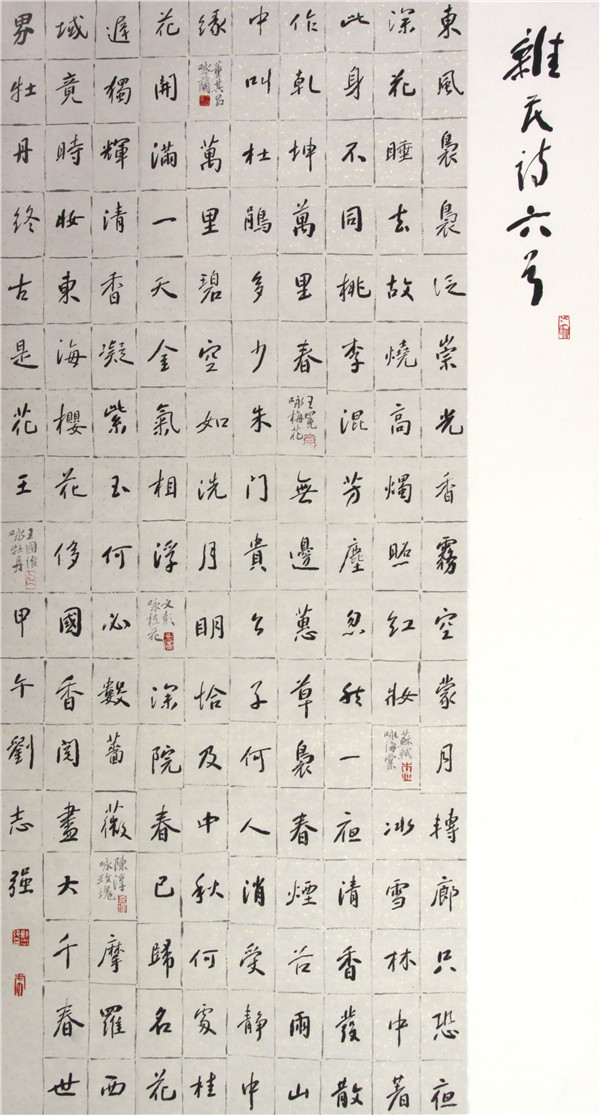 雜花诗六首
東風裊裊泛崇光香霧空蒙月轉廊只恐夜
深花睡去故燒高燭照紅妝
蘇軾
咏海棠
冰雪林中著
此身不同桃李混芳塵忽然一夜清香發散
作乾坤萬里春
王冕
咏梅花
無邊蕙草裊春煙谷雨山
中叫杜鵑多少朱門貴公子何人消受靜中
緣
董其昌
咏蘭
萬里碧空如洗月明恰及中秋何處桂
花開滿一天金氣相浮
文彭
咏桂花
深院春已歸名花
遲獨輝清香凝紫玉何必數薔薇
陳淳
咏玫瑰
摩羅西
域竟時妝東海櫻花侈國香閱盡大千春世
界牡丹終古是花王
王國維
咏牡丹
甲午劉志强